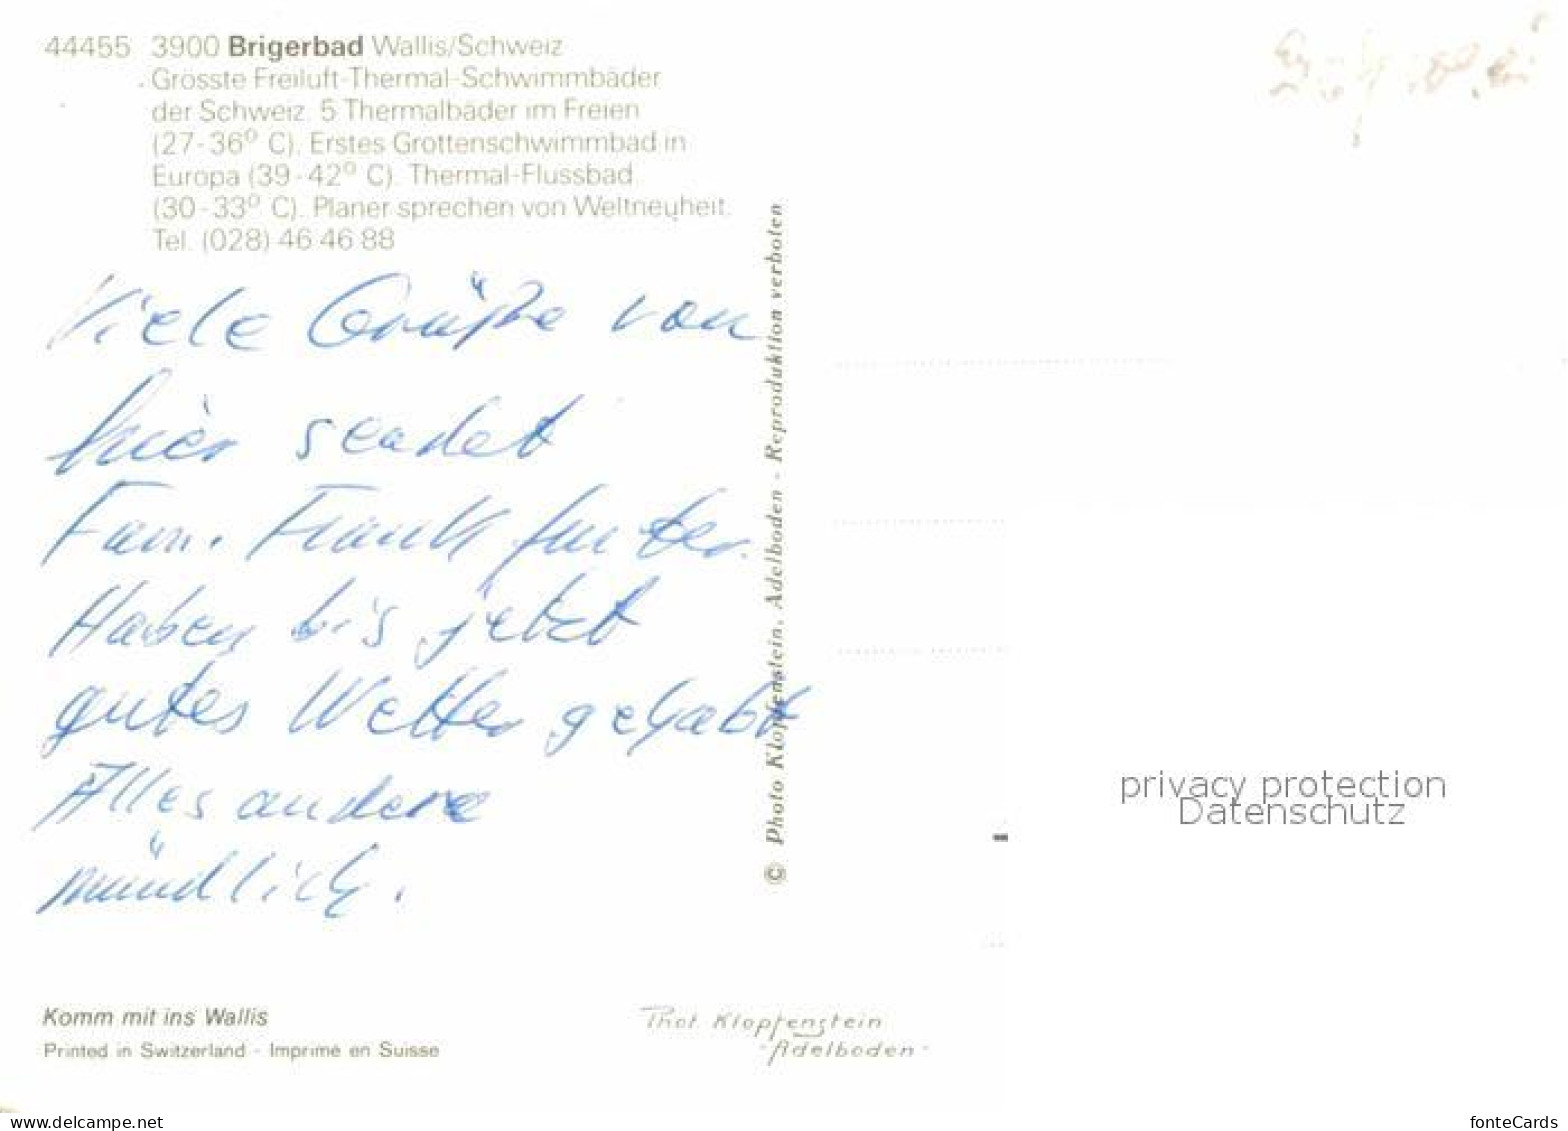 44455 3900 Brigerbad Wallis/Schweiz
Grösste Freiluft-Thermal-Schwimmbäder
der Schweiz. 5 Thermalbäder im Freien
(27-36° C). Erstes Grottenschwimmbad in
Europa (39-42° C). Thermal-Flussbad
(30-33° C). Planer sprechen von Weltneuheit.
Tel. (028) 46 46 88
Viele Grüße von
hier sendet
Fam. Frank
Haben bis jetzt
gutes Wetter gehabt
Alles andere
mündlich.
Komm mit ins Wallis
Printed in Switzerland - Imprimé en Suisse
© Photo Klopfenstein, Adelboden - Reproduktion verboten
Phot. Klopfenstein
- Adelboden -
privacy protection
Datenschutz
www.delcampe.net
fonteCards